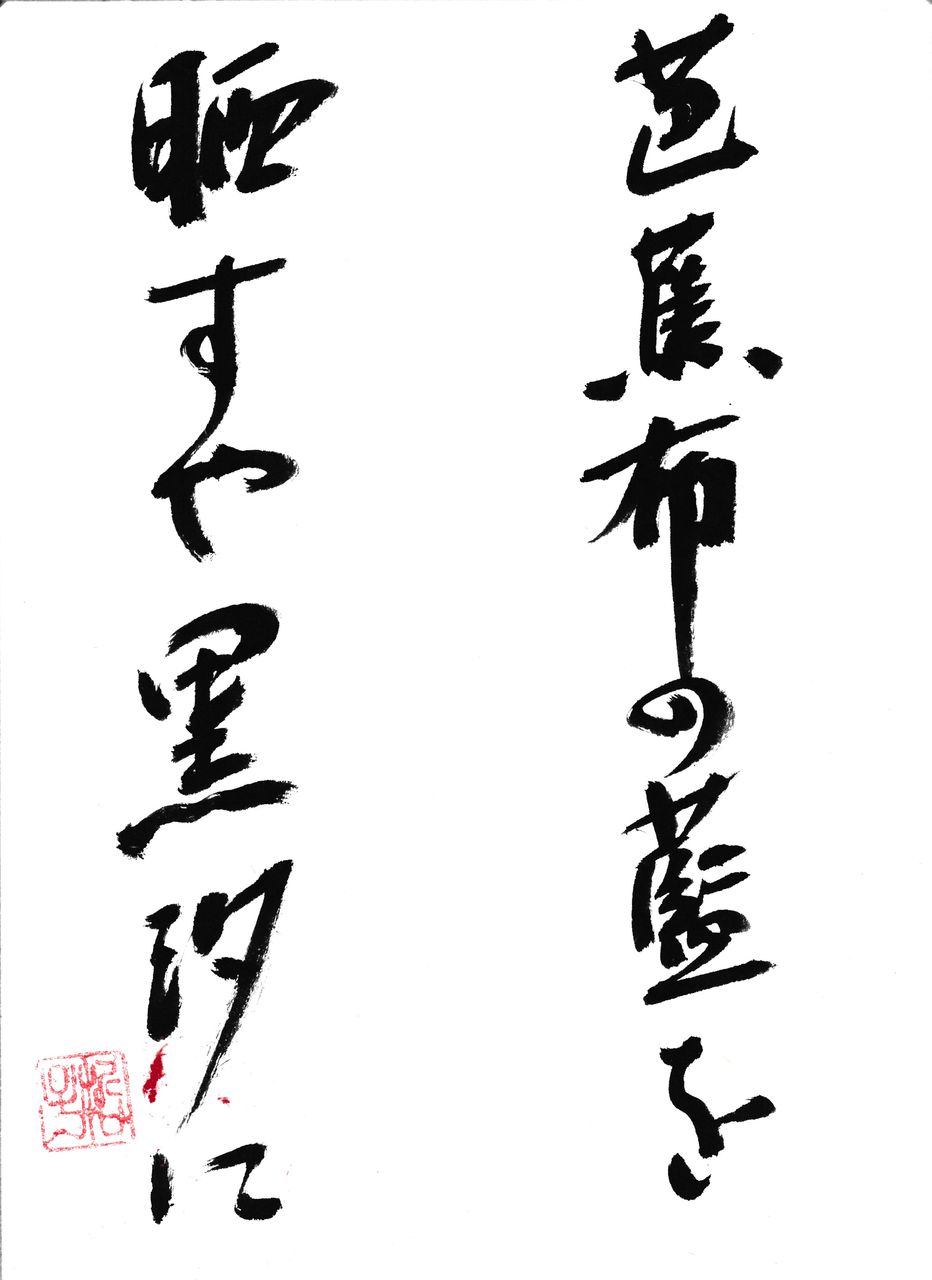 芭蕉布の藍を
晒すや黒汐に